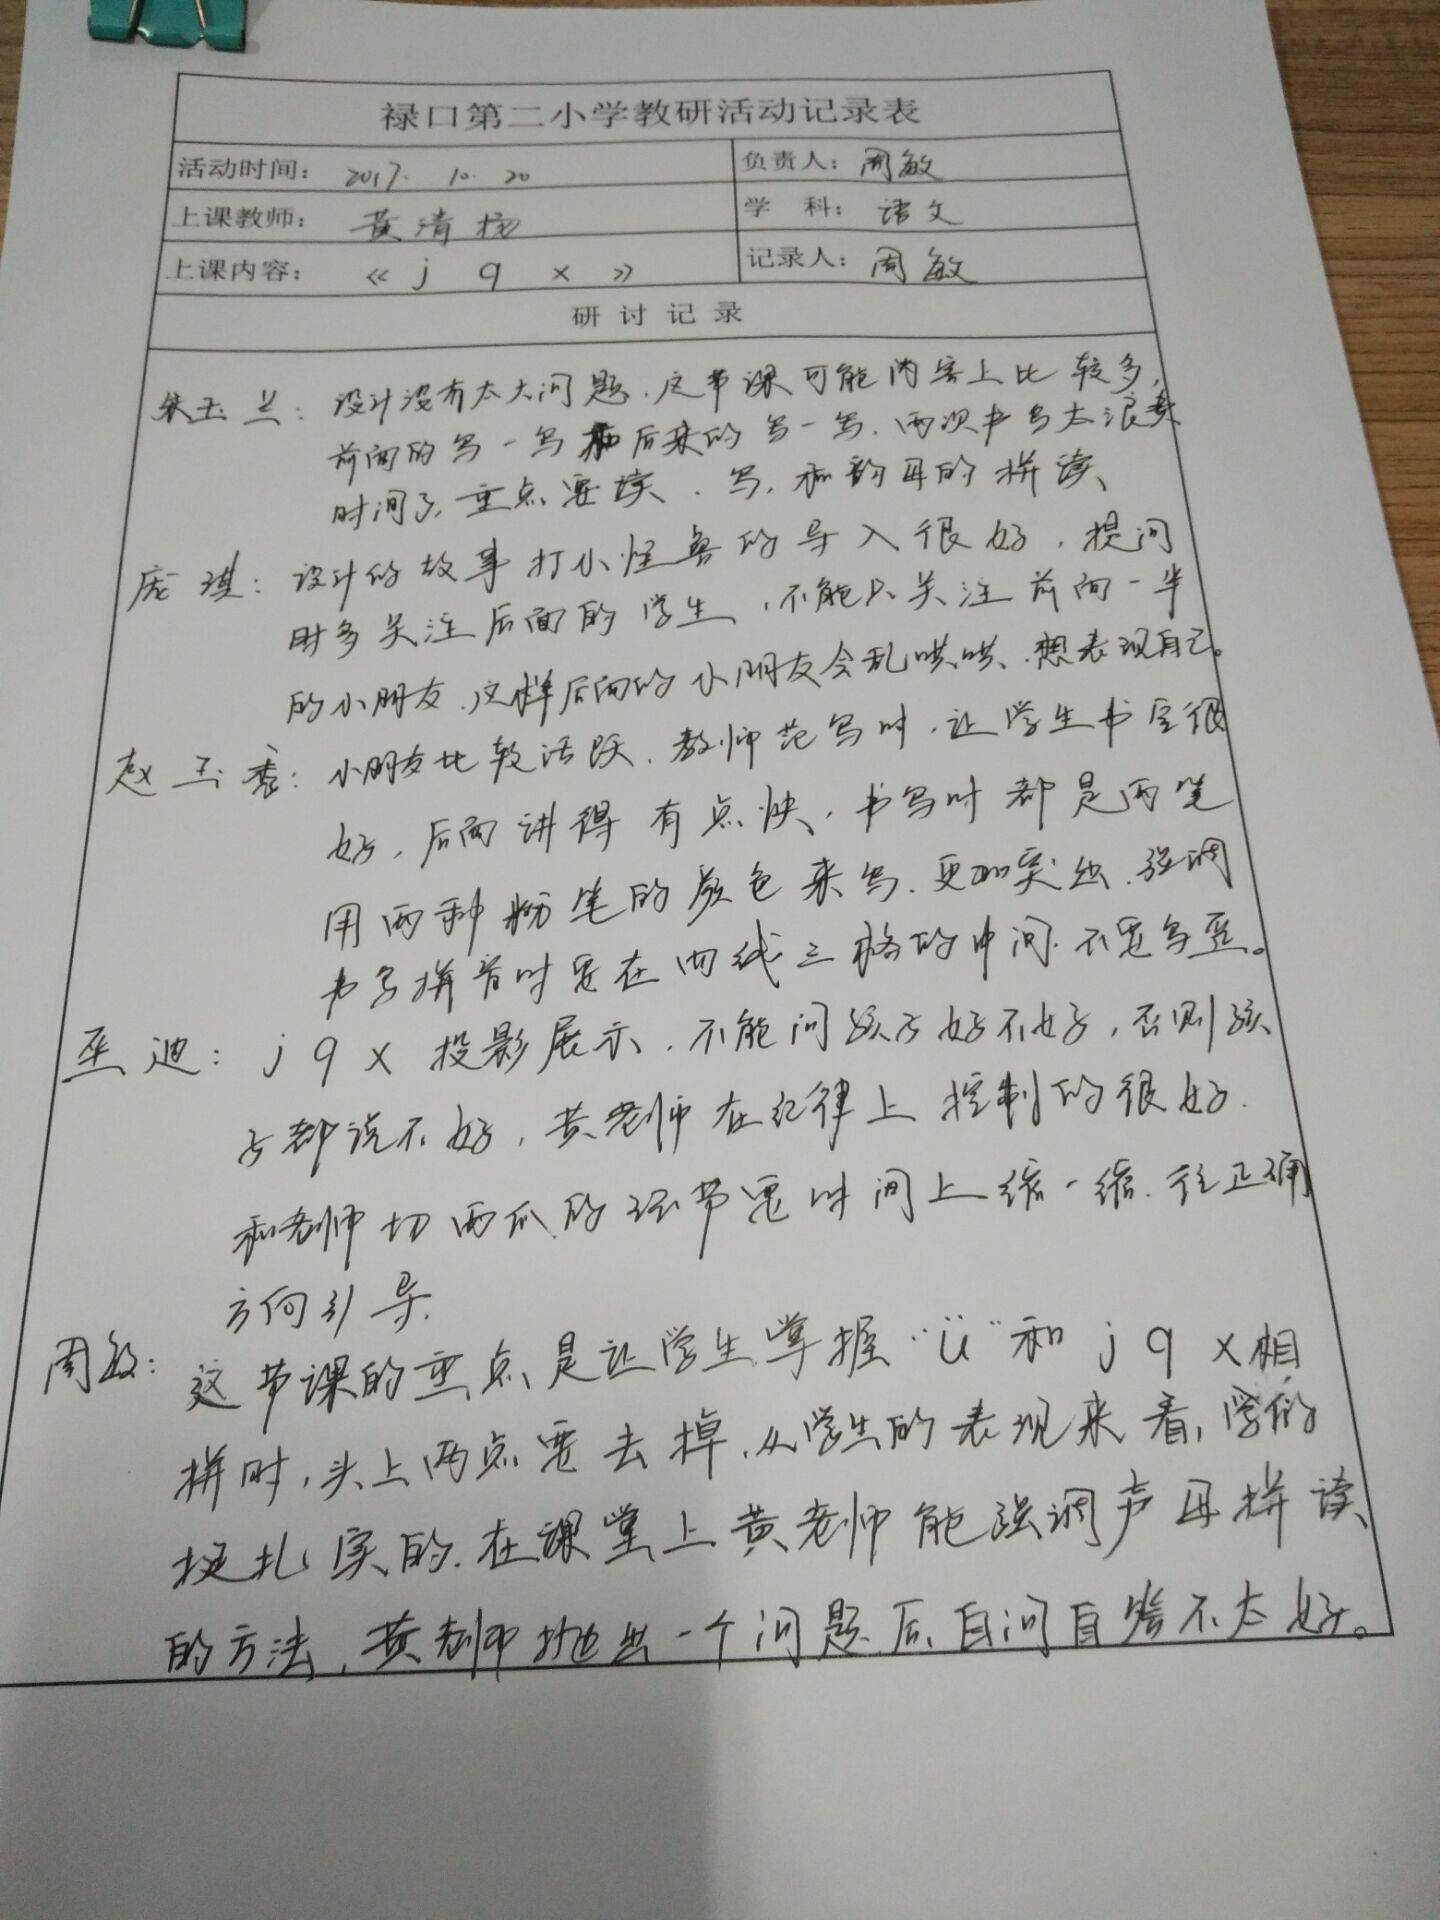 禄口第二小学教研活动记录表
活动时间： 2017. 10. 20 负责人：周敏
上课教师： 黄清扬 学 科：语文
上课内容： 《 j q x 》 记录人：周敏
研 讨 记 录
朱玉兰：设计没有太大问题，这节课可能内容上比较多，
前面的写一写和后来的写一写，两次书写太浪费
时间了，重点要读、写，和韵母的拼读、
庞琪：设计的故事打小怪兽的导入很好，提问
时多关注后面的学生，不能只关注前面一半
的小朋友，这样后面的小朋友会乱哄哄，想表现自己。
赵玉秀：小朋友比较活跃，教师范写时，让学生书空很
好，后面讲得有点快，书写时都是两笔
用两种粉笔的颜色来写，更加突出，强调
书写拼音时要在四线三格的中间，不要写歪。
巫迪： j q x 投影展示，不能问孩子好不好，否则孩
子都说不好，黄老师在纪律上控制的很好，
和老师切西瓜的环节要时间上缩一缩，往正确
方向引导。
周敏：这节课的重点是让学生掌握“ü”和 j q x 相
拼时，头上两点要去掉，从学生的表现来看，学的
挺扎实的，在课堂上黄老师能强调声母拼读
的方法，黄老师抛出一个问题后，自问自答不太好。